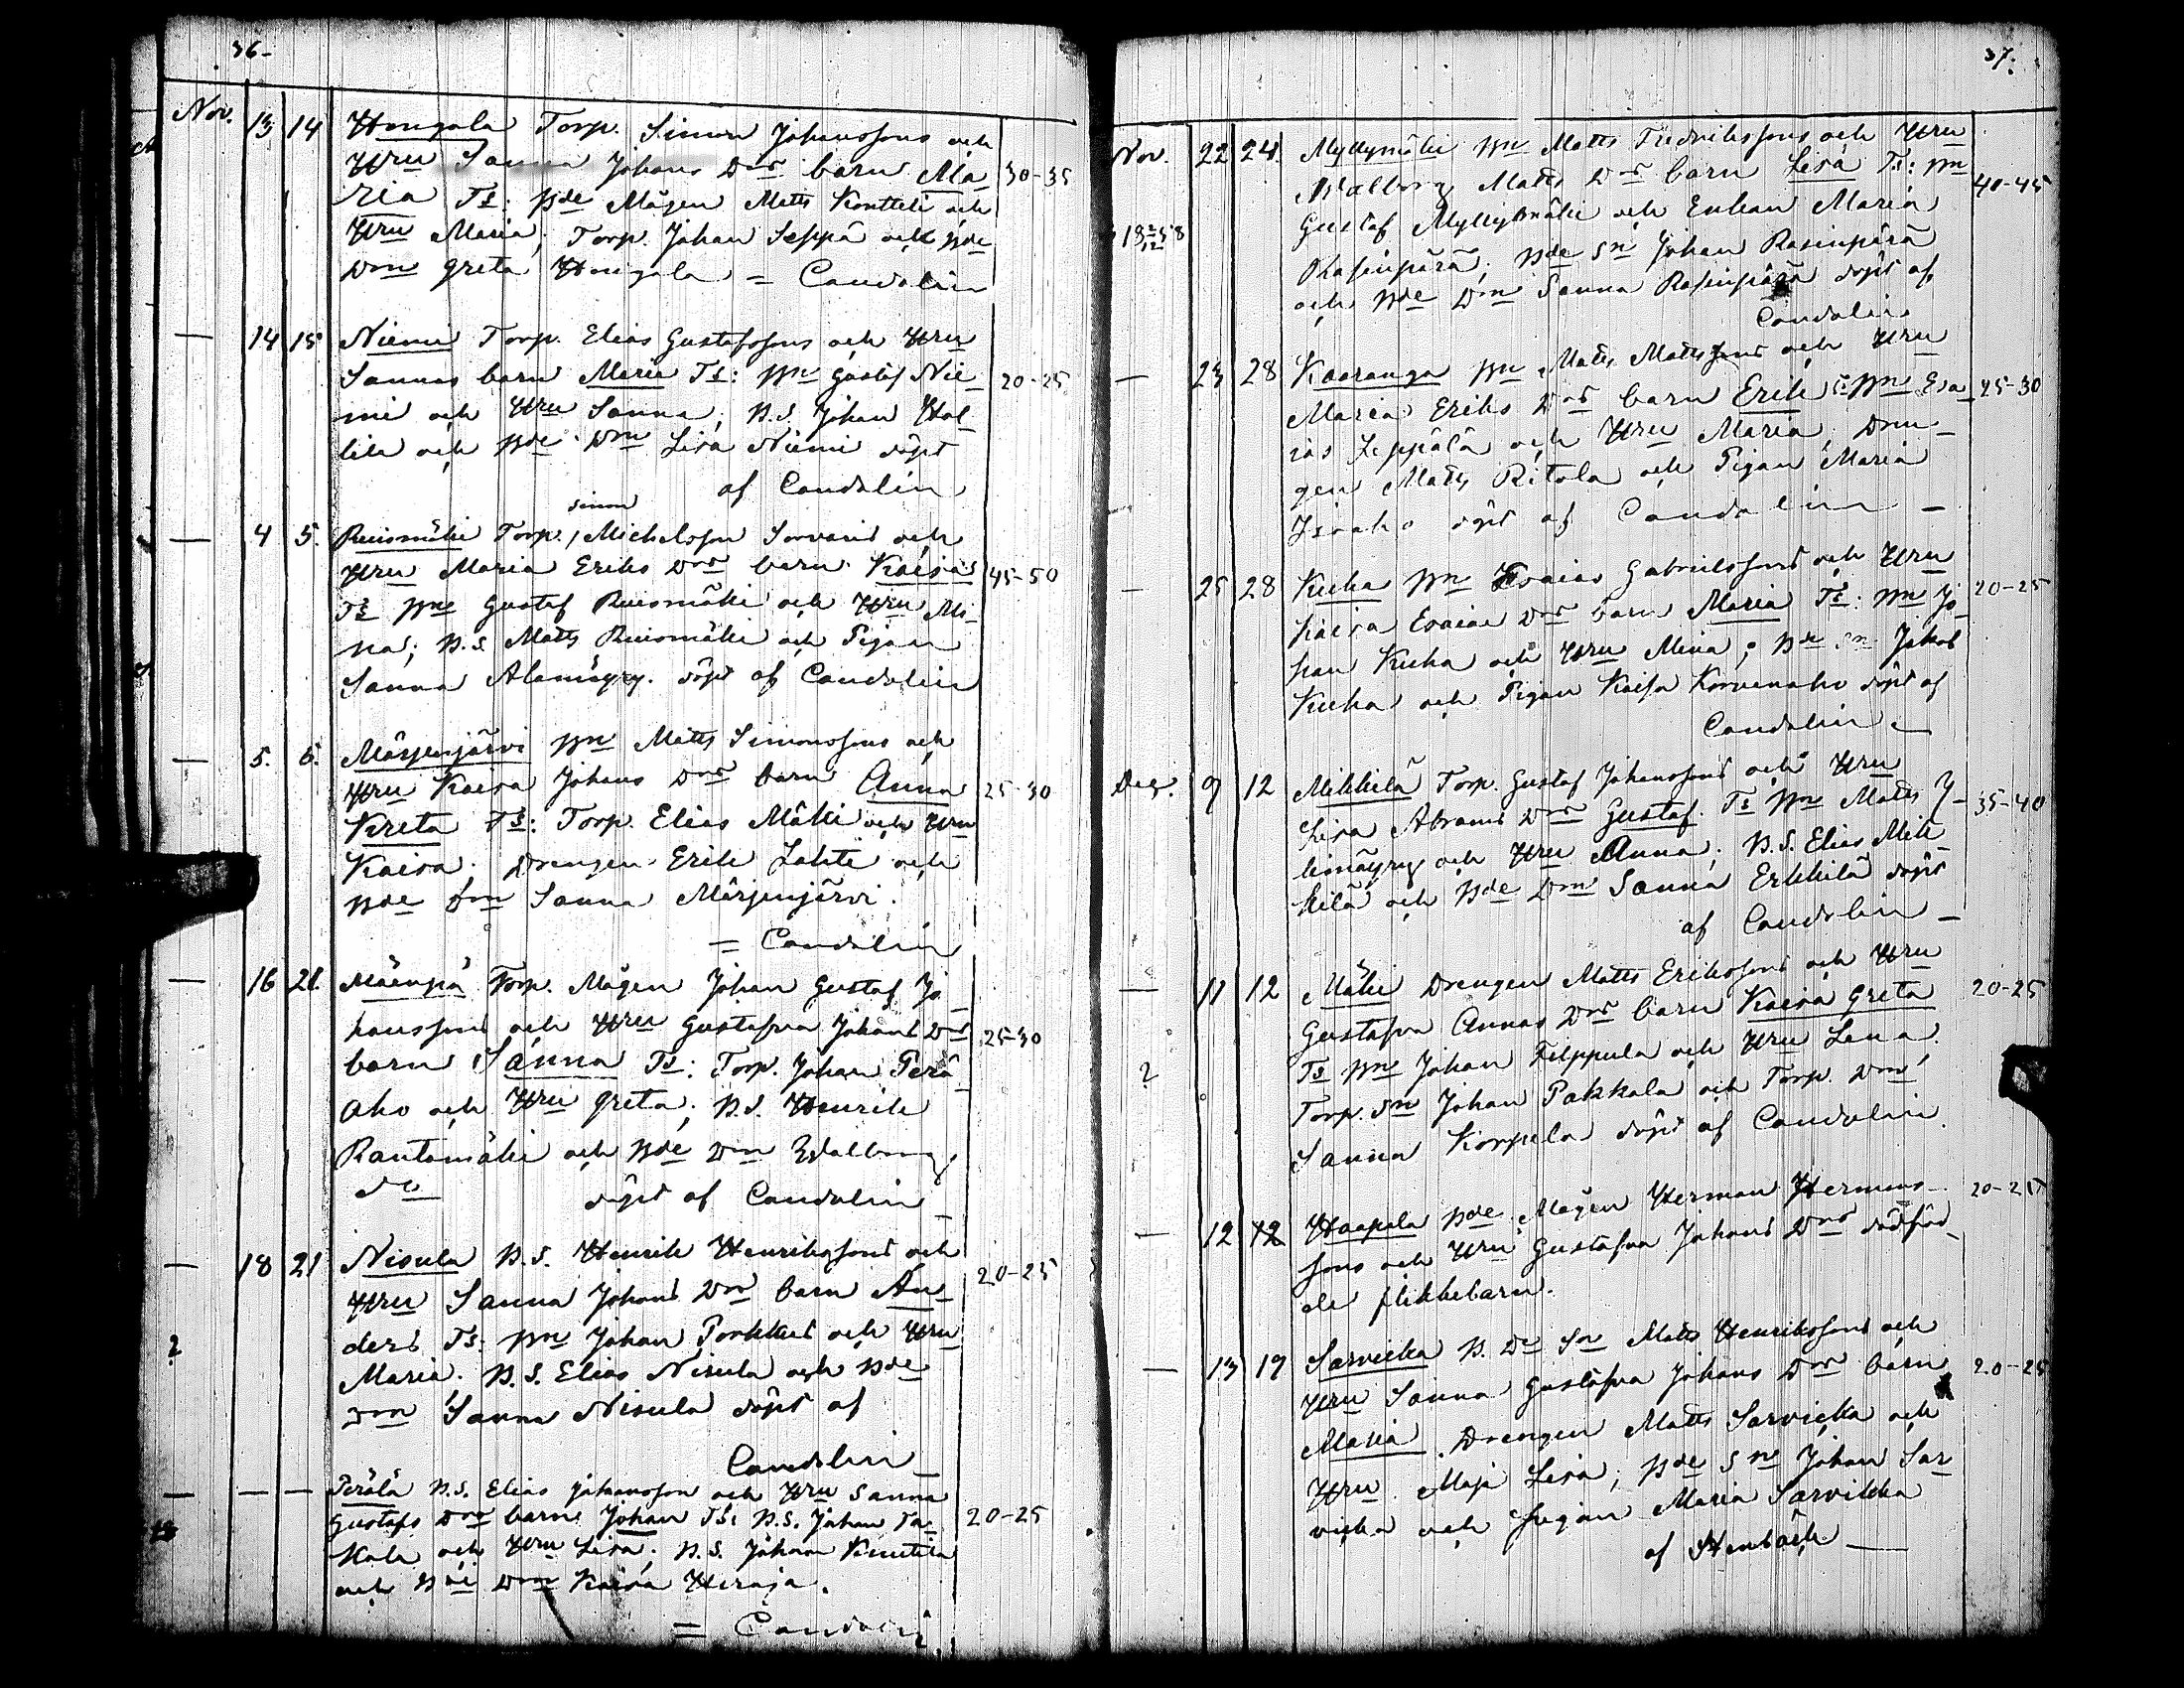 36-
Nov. 13 14 Hongala Torp. Simon Johanssons och
Hru Sanna Johans Dors barn Ma- 30-35
ria Ts: Bde Mågen Matts Kontteli och
Hru Maria; Torp. Johan Seppä och Bde
Dn Greta Hongala = Candolin
— 14 15 Niemi Torp. Elias Gustafssons och Hru
Sannas barn Maria Ts: Bn Gustaf Nie- 20-25
mi och Hru Sanna; B.S. Johan
och Bde Dn Lisa Niemi döpt
af Candolin
Simon
— 4 5. Ruismäki Torp. / Michelsson Sorvaris och
Hru Maria Eriks Dors barn Kaisa 45-50
Ts Bn Gustaf Ruismäki och Hru Mi-
na; B.S. Matts Ruismäki och Pigan
Sanna Alamäyry. döpt af Candolin
— 5. 6. Märjenjärvi Bn Matts Simonssons och
Hru Kaisa Johans Dors barn Anna 25-30
Kreta Ts: Torp. Elias Mäki och Hru
Kaisa; Drengen Erik Lahti och
Bde Dn Sanna Märjenjärvi.
= Candolin
— 16 21. Mäenpä Torp. Mågen Johan Gustaf Jo-
hanssons och Hru Gustafva Johans Dors 25-30
barn Sanna Ts: Torp. Johan Perä-
aho och Hru Greta; B.S. Henrik
Rantamäki och Bde Dn Walborg
do döpt af Candolin
— 18 21 Nisula B.S. Henrik Henrikssons och 20-25
Hru Sanna Johans Dors barn An-
ders Ts: Bn Johan Porkkus och Hru
? Maria. B.S. Elias Nisula och Bde
Dn Sanna Nisula döpt af
Candolin
— — — Perälä B.S. Elias Johansson och Hru Sanna
Gustafs Dors barn Johan Ts: B.S. Johan Ta- 20-25
kala och Hru Lisa; B.S. Johan Knuutila
och Bde Dn Kaisa Heraja.
= Candolin
37.
Nov. 22 24. Myllymäki Bn Matts Fredrikssons och Hru
Walborg Matts Dors barn Lisa Ts: Bn 40-45
Gustaf Myllymäki och Enkan Maria
18 2/12 58 Rasinpärä; Bde Sn Johan Rasinpärä
och Bde Dn Sanna Rasinpärä döpt af
Candolin
— 23 28 Kaaranga Bn Matts Mattssons och Hru
Maria Eriks Dors barn Erik Ts Bn Esa- 25-30
ias Seppälä och Hru Maria; Drän-
gen Matts Ritola och Pigan Maria
Isoaho döpt af Candolin —
— 25 28 Kuha Bn Esaias Gabrielssons och Hru
Kaisa Esaiae Dors barn Maria Ts: Bn Jo- 20-25
han Kuha och Hru Mina; Bde Sn Jakob
Kuha och Pigan Kaisa Korvenaho döpt af
Candolin.
Dec. 9 12 Mikkilä Torp. Gustaf Johanssons och Hru
Lisa Abrams Dors Gustaf. Ts Bn Matts Y- 35-40
limäyry och Hru Anna; B.S. Elias Mik-
kilä och Bde Dn Sanna Erkkilä döpt
af Candolin —
— 11 12 Mäki Drengen Matts Erikssons och Hru
Gustafva Annas Dors barn Kaisa Greta 20-25
? Ts Bn Johan Filppula och Hru Lena.
Torp. Sn Johan Pakkala och Torp. Dn
Sanna Korpela döpt af Candolin.
— 12 12 Haapala Bde Mågen Herman Hermans- 20-25
sons och Hru Gustafva Johans Dors dödföd-
de flikkebarn.
— 13 19 Sarvikka B. De Sn Matts Henrikssons och
Hru Sanna Gustafva Johans Dors barn 20-25
Maria. Drengen Matts Sarvicka och
Hru Maja Lisa; Bde Sn Johan Sar-
vicka och Pigan Maria Sarvikka
af Stenbäck —